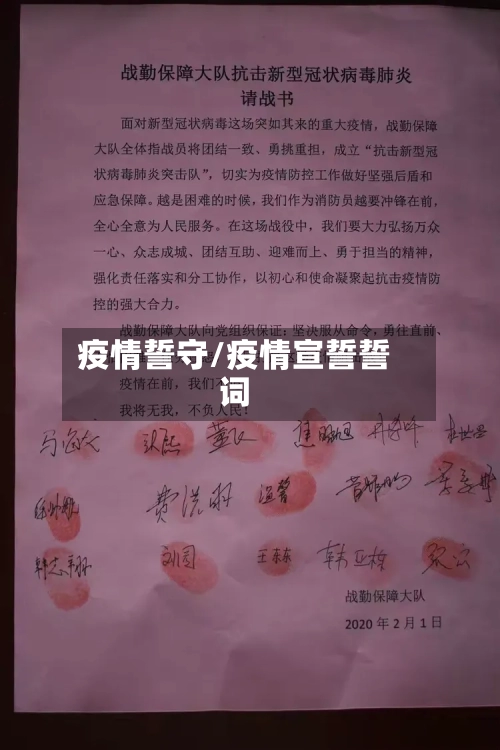 战勤保障大队抗击新型冠状病毒肺炎
请战书
面对新型冠状病毒这场突如其来的重大疫情，战勤保障
大队全体指战员将团结一致、勇挑重担，成立“抗击新型冠
状病毒肺炎突击队”，切实为疫情防控工作做好坚强后盾和
应急保障。越是困难的时候，我们作为消防员越要冲锋在前，
全心全意为人民服务。在这场战役中，我们要大力弘扬万众
一心、众志成城、团结互助、迎难而上、勇于担当的精神，
强化责任落实和分工协作，以初心和使命凝聚起抗击疫情防
控的强大合力。
战勤保障大队向党组织保证：坚决服从命令，勇往直前、
疫情誓守/疫情宣誓誓
词
疫情在前，我们
我将无我，不负人民！
费洪刚
刘园
王东东
韩亚栋
战勤保障大队
2020 年 2 月 1 日